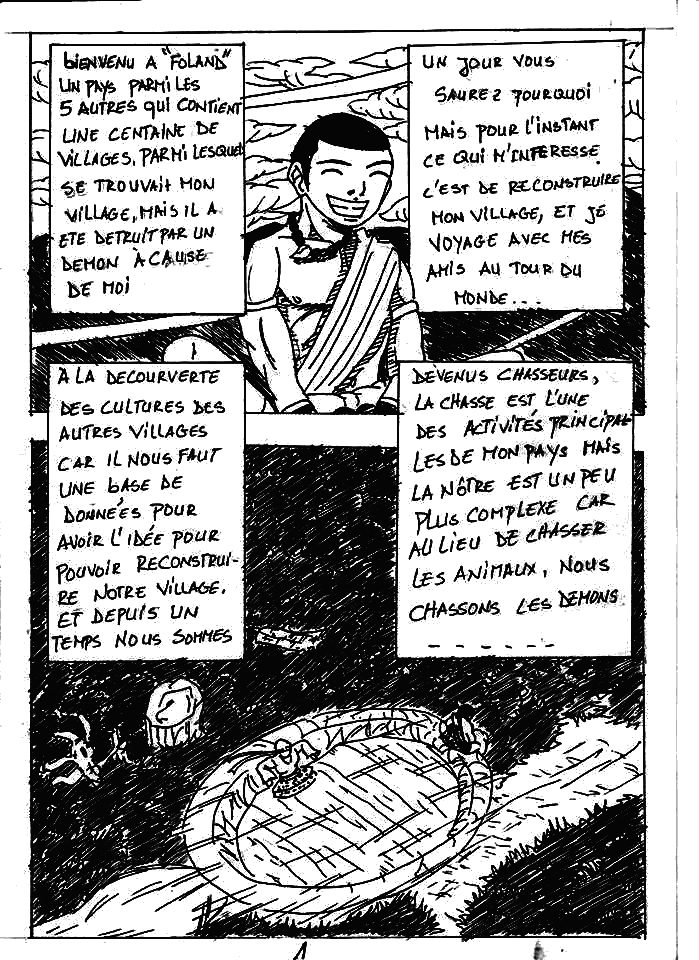 BIENVENU A "FOLAND"
UN PAYS PARMI LES
5 AUTRES QUI CONTIENT
UNE CENTAINE DE
VILLAGES, PARMI LESQUEL
SE TROUVAIT MON
VILLAGE, MAIS IL A
ETE DETRUIT PAR UN
DEMON À CAUSE
DE MOI
UN JOUR VOUS
SAUREZ POURQUOI
MAIS POUR L'INSTANT
CE QUI M'INTERESSE
C'EST DE RECONSTRUIRE
MON VILLAGE, ET JE
VOYAGE AVEC MES
AMIS AU TOUR DU
MONDE...
À LA DECOURVERTE
DES CULTURES DES
AUTRES VILLAGES
CAR IL NOUS FAUT
UNE BASE DE
DONNÉES POUR
AVOIR L'IDÉE POUR
POUVOIR RECONSTRUI-
RE NOTRE VILLAGE.
ET DEPUIS UN
TEMPS NOUS SOMMES
DEVENUS CHASSEURS,
LA CHASSE EST L'UNE
DES ACTIVITÉS PRINCIPAL
LES DE MON PAYS MAIS
LA NÔTRE EST UN PEU
PLUS COMPLEXE CAR
AU LIEU DE CHASSER
LES ANIMAUX, NOUS
CHASSONS LES DEMONS
- - - - - -
1